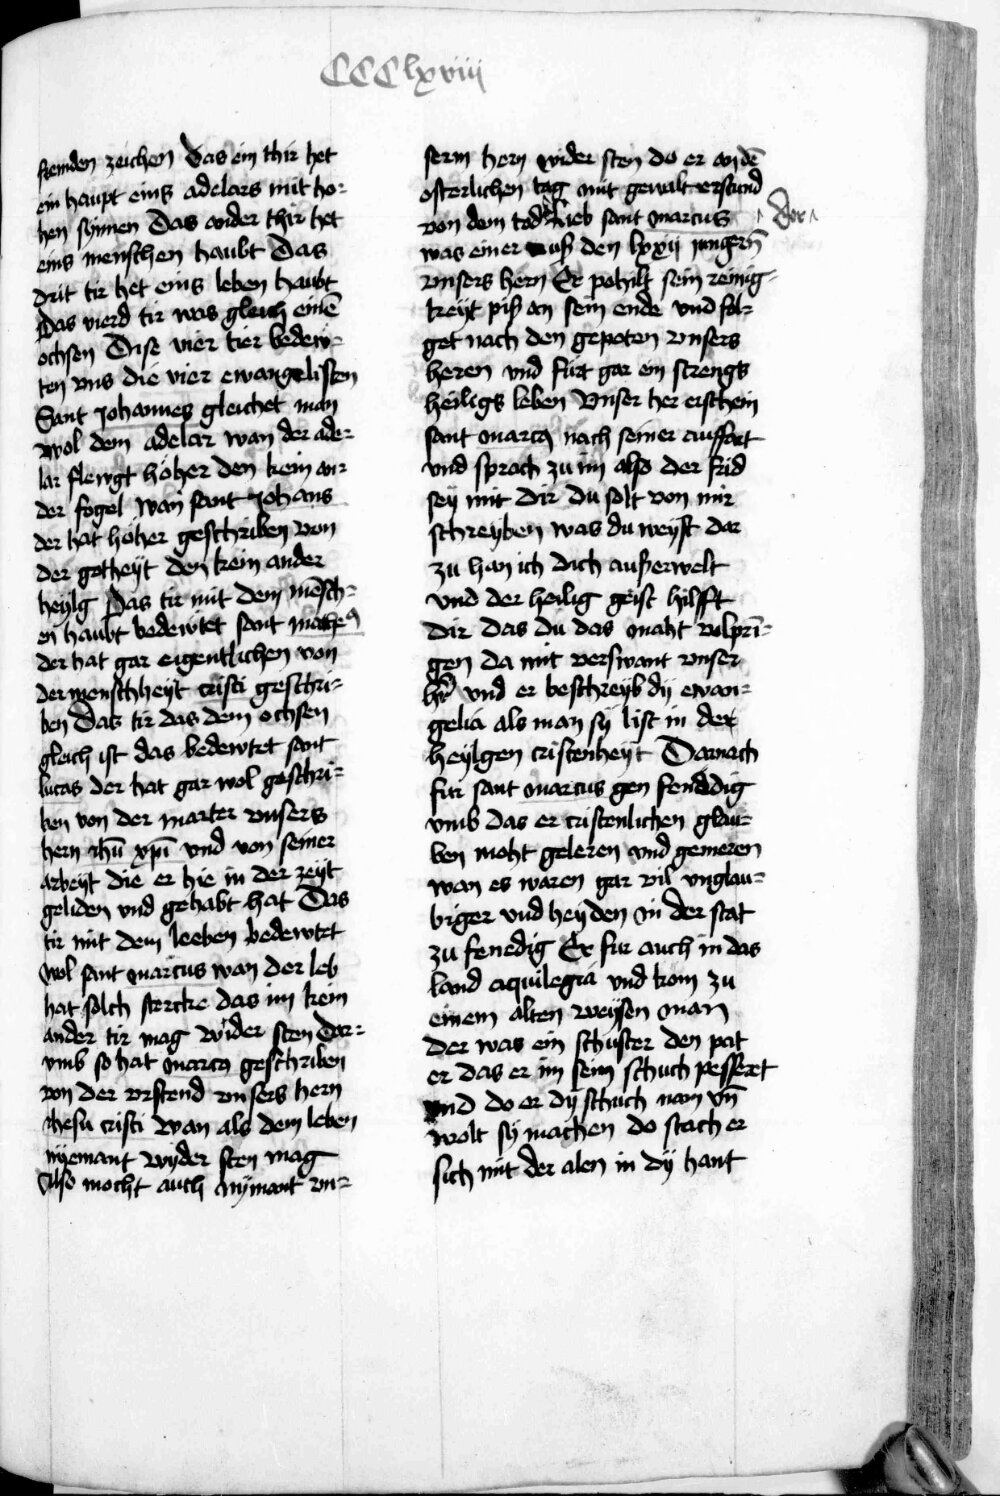 CCClxviii
fremden zeichen Das ein thir het
ein haupt eins adelars mit ho-
hen synnen Das ander thir het
eins menschen haubt Das
drit tir het eins leben haubt
Das vierd tir was gleich einē
ochsen Dise vier tier bedew-
ten vns die vier ewangelisten
Sant Johannes gleichet man
wol dem adelar wan der ade-
lar flewgt höher den kein an-
der fogel wan sant Johans
der hat höher geschriben von
der gotheyt den kein ander
heylg Das tir mit dem mēsch-
en haubt bedewtet sant mathe9
der hat gar eigentlichen von
der menschheyt cristi geschri-
ben Daz tir das dem ochsen
gleich ist das bedewtet sant
lucas der hat gar wol geschri-
ben von der marter vnsers
hern ihū xpī vnd von seiner
arbeyt die er hie in der zeyt
geliden vnd gehabt hat Das
tir mit dem leeben bedewtet
wol sant marcus wan der leb
hat solch stercke das im kein
ander tir mag wider sten Dar-
vmb so hat marc9 geschriben
von der vrstend vnsers hern
ihesu cristi wan als dem leben
nyemant wyder sten mag
Also mocht auch nymant vn-
serm hern wider sten do er an dē
osterlichen tag mit gewalt erstund
von dem tod Der lieb sant marcus
was einer auß den lxxij jungern̄
vnsers hern Er pehilt sein reinig-
keyt piß an sein ende vnd fol-
get nach den gepoten vnsers
heren vnd fürt gar ein strengs
heiligs leben Vnser her erschein
sant marc9 nach seiner auffart
vnd sprach zu im also der frid
sey mit dir du solt von mir
schreyben was du weyst dar
zu han ich dich außerwelt
vnd der heilig geist hilfft
dir das du das maht volprī-
gen da mit verswant vnser
h̄r vnd er beschreyb dy ewan-
gelia als man sy list in der
heylgen cristenheyt Darnach
fur sant marcus gen fenddig
vmb das er cristenlichen glau-
ben moht geleren vnd gemeren
wan es waren gar vil vnglau-
biger vnd heyden in der stat
zu fenedig Er fur auch in das
land aquilegia vnd kom zu
einem alten weysen man
der was ein schuster den pat
er das er im sein schuch pessert
vnd do er dy schuch nam vn̄
wolt sy machen do stach er
sich mit der alen in dy hant